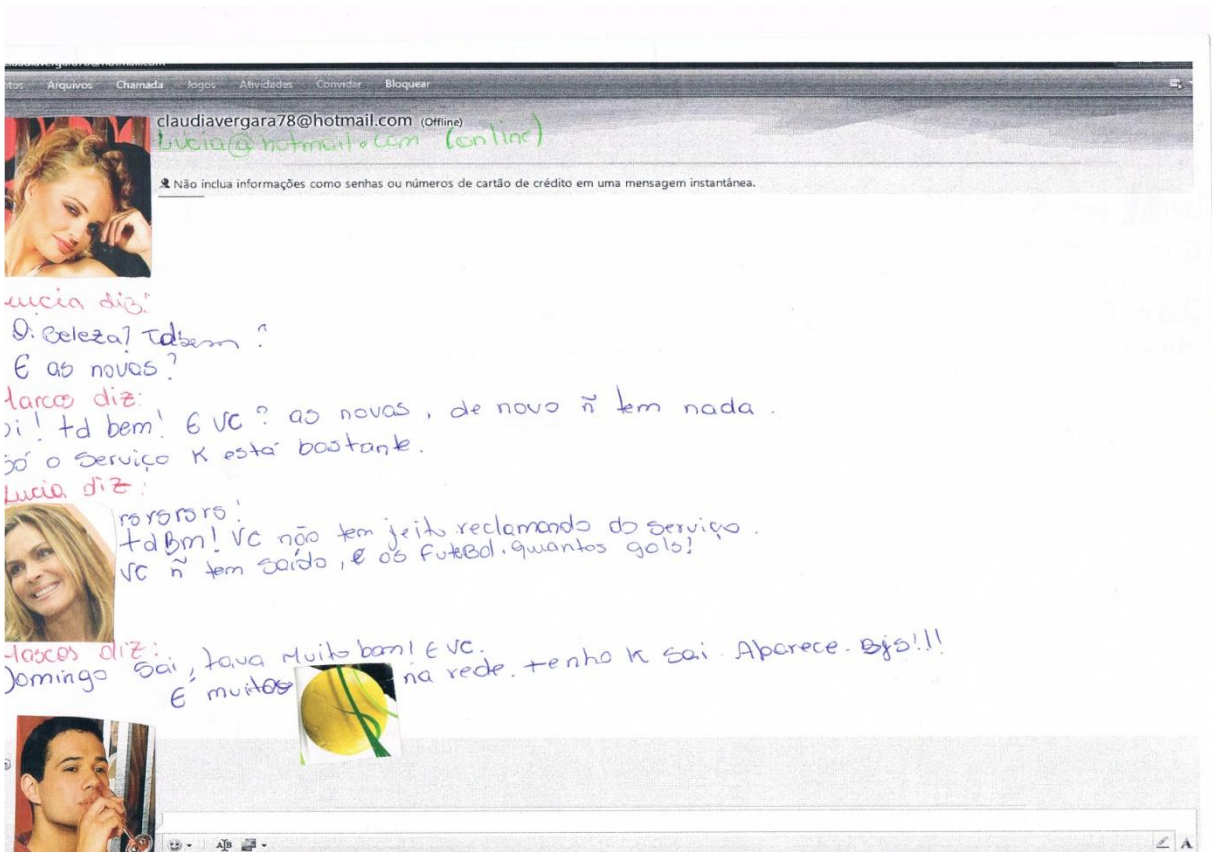 Arquivos Chamada Jogos Atividades Convidar Bloquear
claudiavergara78@hotmail.com (Offline)
Lúcia@hotmail.com (online)
Não inclua informações como senhas ou números de cartão de crédito em uma mensagem instantânea.
Lucia diz:
Oi Beleza? Tdbem?
E as novas?
Marcos diz:
Oi! td bem! E VC? as novas, de novo ñ tem nada.
Só o Serviço K está bastante.
Lucia diz:
rsrsrsrs!
tdBm! VC não tem jeito reclamando do serviço.
VC ñ tem saído, e os FuteBol. quantos gols!
Marcos diz:
Domingo sai, tava Muito bom! E VC.
E muitos na rede. tenho K sai. Aparece. Bjs!!!
A